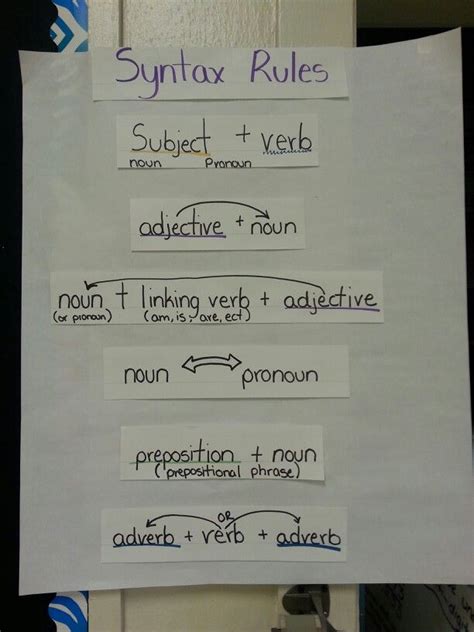 Syntax Rules
Subject + verb
noun Pronoun
adjective + noun
noun + linking verb + adjective
(or pronoun) (am, is, are, ect)
noun ⇔ pronoun
preposition + noun
(prepositional phrase)
OR
adverb + verb + adverb